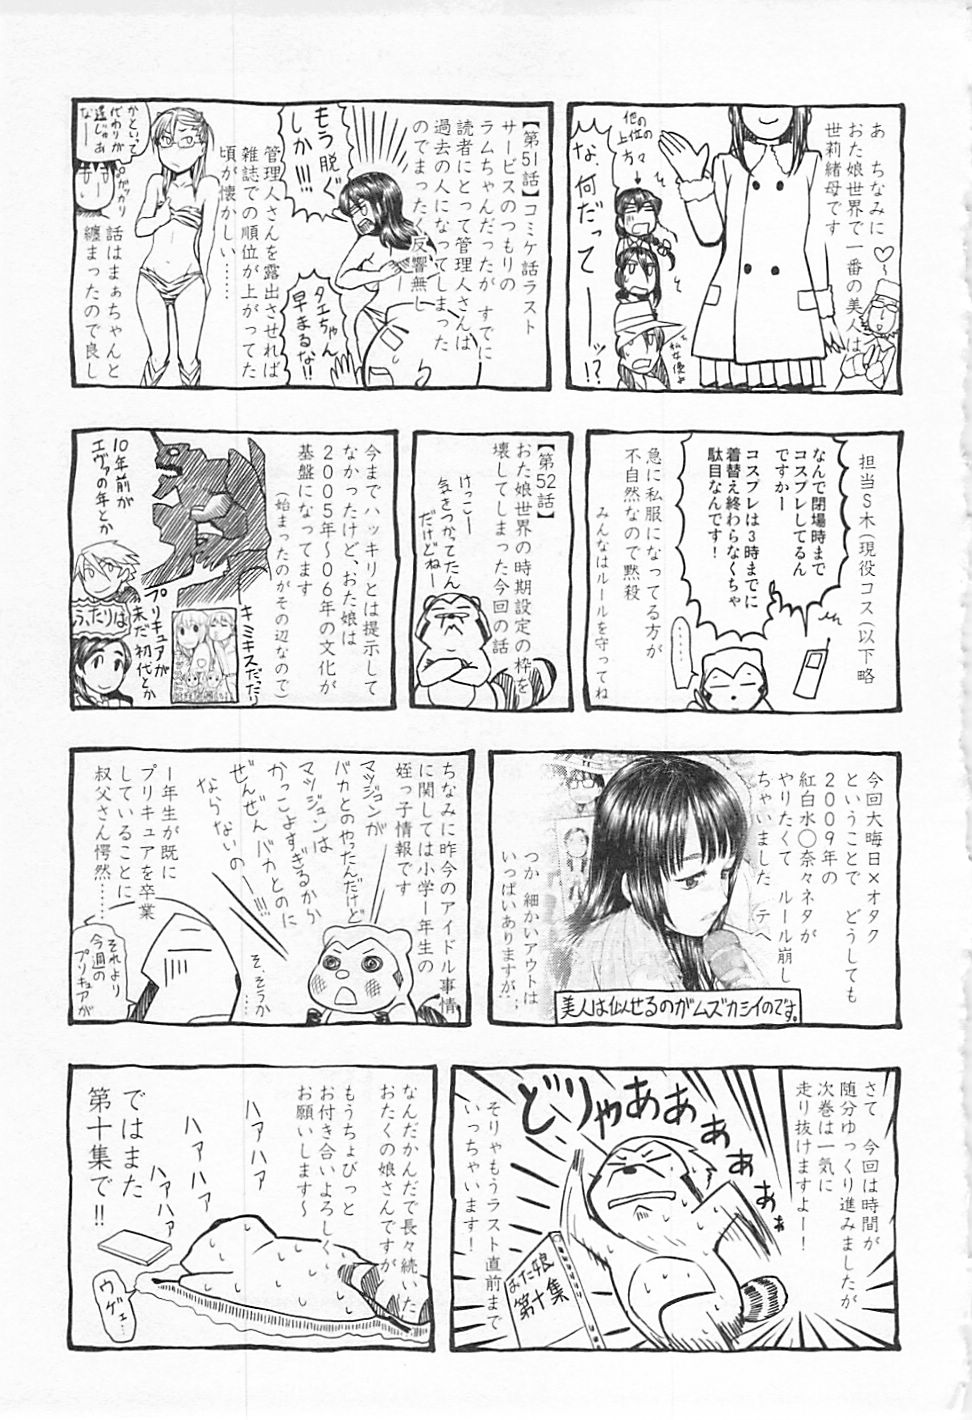 あ　ちなみに
おた娘世界で一番の美人は
世莉緒母です
♡〜
他の
上位の
方々
な、何だって
ーーッ!?
私も優よ
【第51話】コミケ話ラスト
サービスのつもりの
ラムちゃんだったが　すでに
読者にとって管理人さんは
過去の人になってしまった
のでまったく反響無し
もう脱ぐ
しか!!!
タエちゃん
早まるな!!
管理人さんを露出させれば
雑誌での順位が上がってた
頃が懐かしい……
かといって
代わりが
遥じゃあ
なー
ガッカリ
話はまぁちゃんと
纏まったので良し
担当S木(現役コス(以下略
なんで閉場時まで
コスプレしてるん
ですかー
コスプレは3時までに
着替え終わらなくちゃ
駄目なんです!
急に私服になってる方が
不自然なので黙殺
みんなはルールを守ってね
……
【第52話】
おた娘世界の時期設定の枠を
壊してしまった今回の話
けっこー
気をつかってたん
だけどねー
今までハッキリとは提示して
なかったけど、おた娘は
2005年〜06年の文化が
基盤になってます
(始まったのがその辺なので)
10年前が
エヴァの年とか
キミキスだったり
プリキュアが
未だ初代とか
ふたりは
今回大晦日×オタク
ということで　どうしても
2009年の
紅白水〇奈々ネタが
やりたくて　ルール崩し
ちゃいました　テヘ
つか　細かいアウトは
いっぱいありますが…
美人は似せるのがムズカシイのです。
ちなみに昨今のアイドル事情
に関しては小学1年生の
姪っ子情報です
マツジュンが
バカとのやったんだけど
マツジュンは
かっこよすぎるから
ぜんぜんバカとのに
ならないのーー!
そ、そうか
1年生が既に
プリキュアを卒業
していることに
叔父さん愕然……
それより
今週の
プリキュアが
さて　今回は時間が
随分ゆっくり進みましたが
次巻は一気に
走り抜けますよー!
どりゃああぁぁぁぁ
そりゃもうラスト直前まで
いっちゃいます!
おた娘
第十集
なんだかんだで長々続いた
おたくの娘さんですが
もうちょびっと
お付き合いよろしく
お願いします〜
ハァハァ
ハァハァ
ハァハァ
ウゲェ…
ではまた
第十集で!!